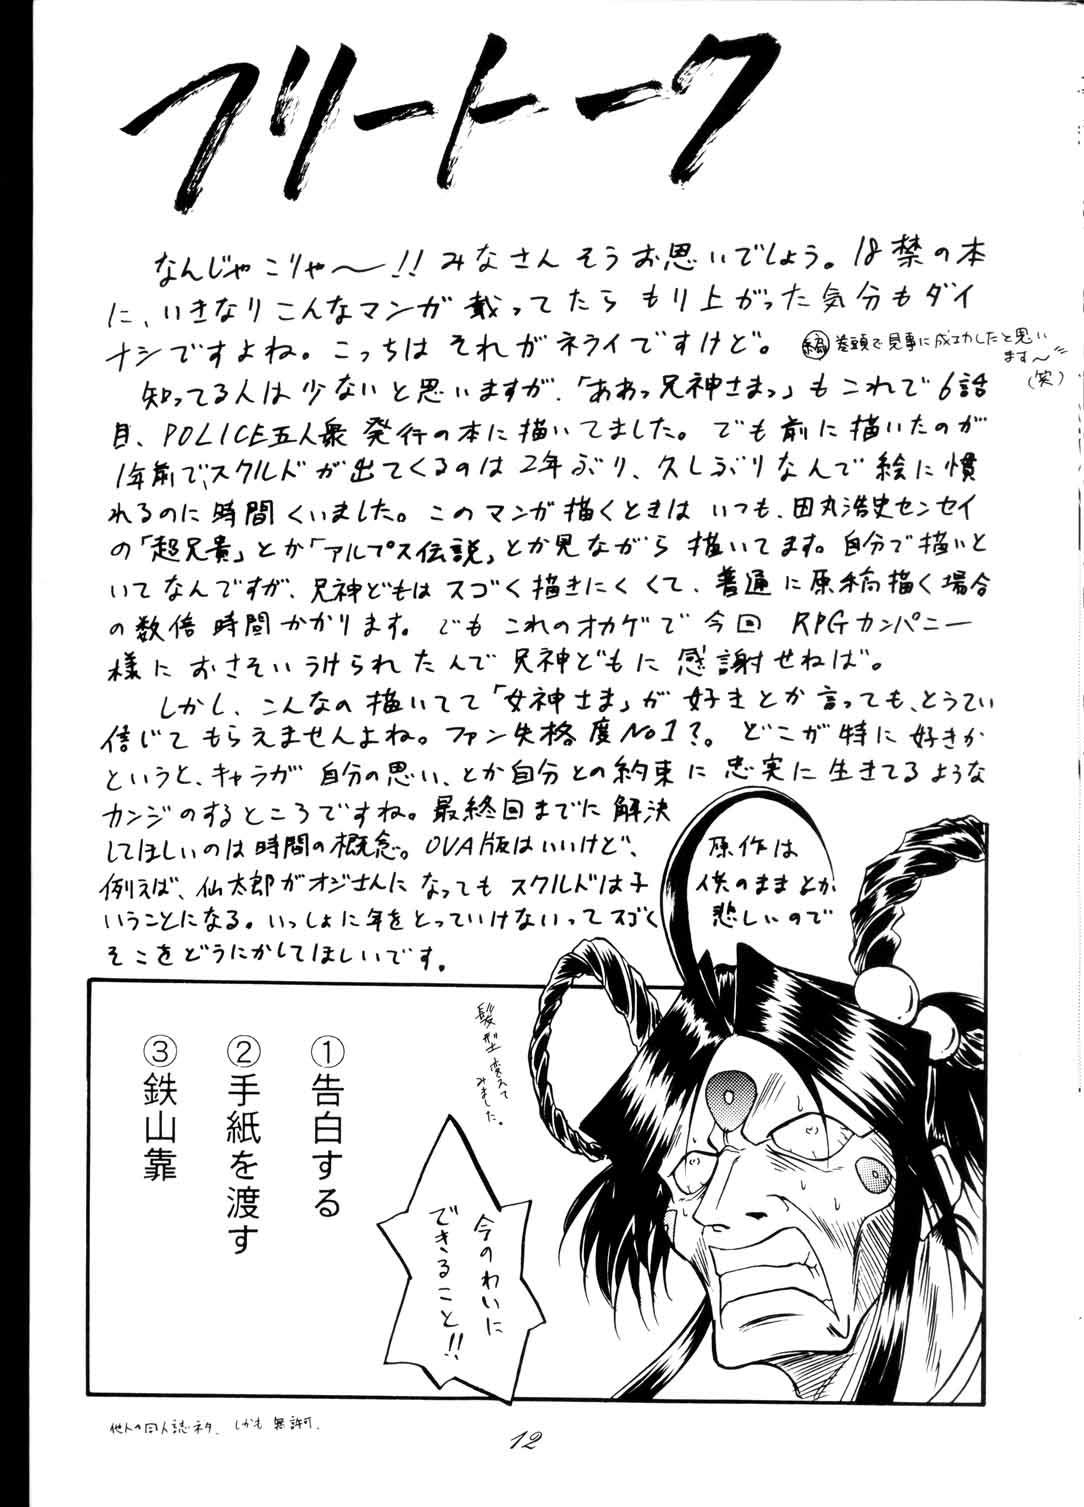 フリートーク
なんじゃこりゃ〜!!みなさんそうお思いでしょう。18禁の本
に、いきなりこんなマンガ載ってたらもり上がった気分もダイ
ナシですよね。こっちはそれがネライですけど。
巻頭で見事に成功したと思い
ます〜
(笑)
知ってる人は少ないと思いますが、「ああっ兄神さまっ」もこれで6話
目、POLICE五人衆発行の本に描いてました。でも前に描いたのが
1年前で、スクルドが出てくるのは2年ぶり、久しぶりなんで絵に慣
れるのに時間くいました。このマンガ描くときはいつも、田丸浩史センセイ
の「超兄貴」とか「アルプス伝説」とか見ながら描いてます。自分で描いと
いてなんですが、兄神どもはスゴく描きにくくて、普通に原稿描く場合
の数倍時間かかります。でもこれのオカゲで今回RPGカンパニー
様におさそいうけられたんで兄神どもに感謝せねば。
しかし、こんなの描いてて「女神さま」が好きとか言っても、とうてい
信じてもらえませんよね。ファン失格度No1?。どこが特に好きか
というと、キャラが自分の思い、とか自分との約束に忠実に生きてるような
カンジのするところですね。最終回までに解決
してほしいのは時間の概念。OVA版はいいけど、原作は
例えば、仙太郎がオジさんになってもスクルドは子供のままとか
いうことになる。いっしょに年をとっていけないってスゴく悲しいので
そこをどうにかしてほしいです。
髪型変えて
みました。
①告白する
②手紙を渡す
③鉄山靠
今のわいに
できること!!
他人の同人誌ネタ、しかも無許可。
12